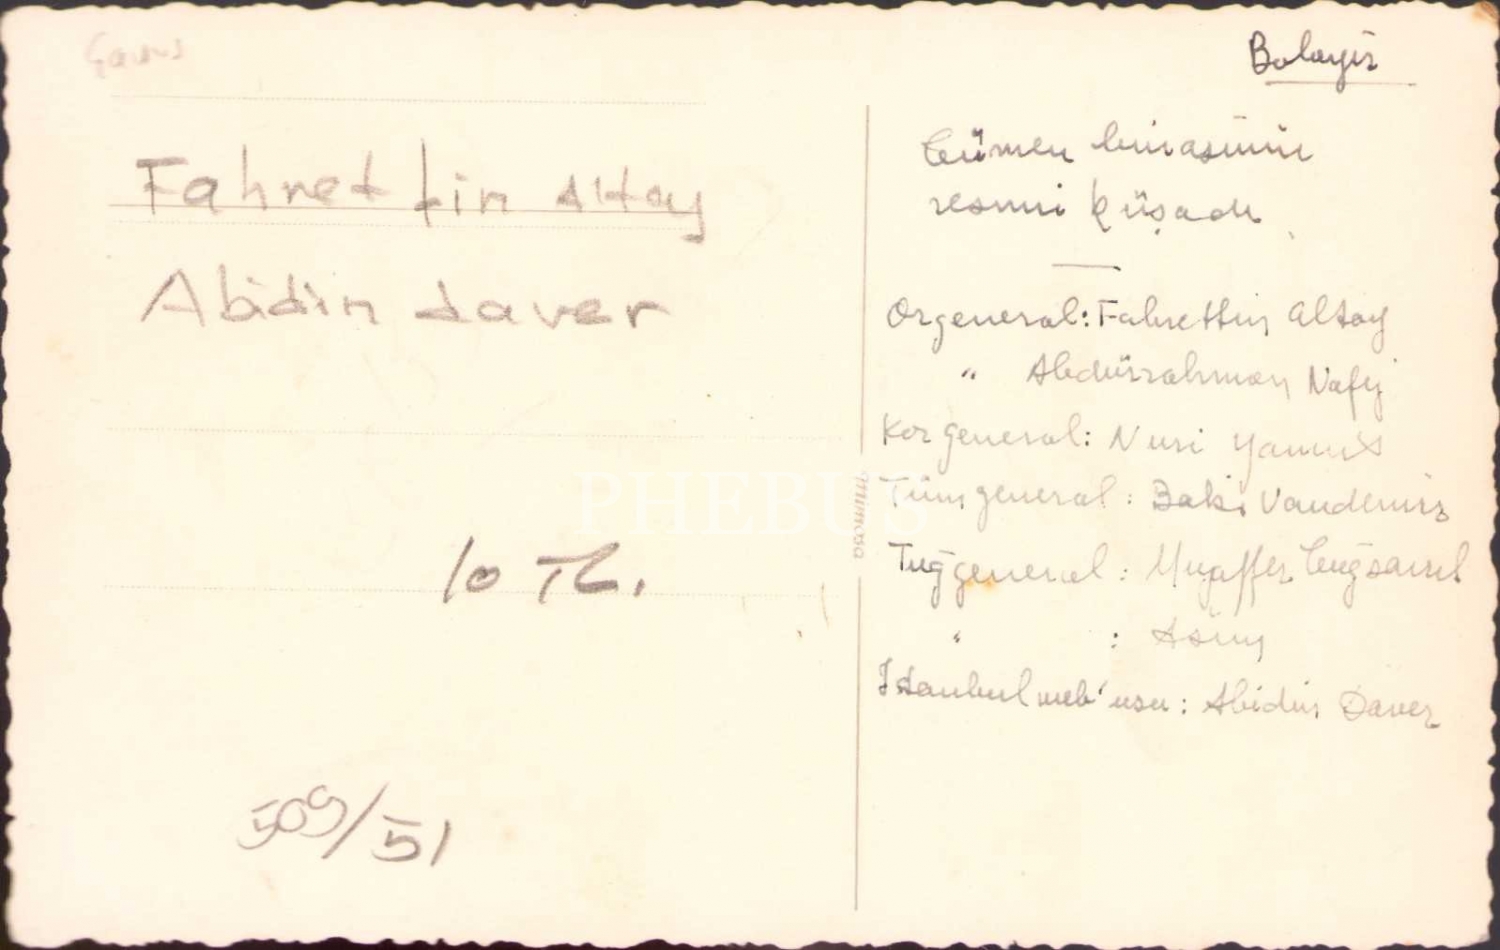 Fahrettin Altay
Abidin daver
10 TL.
509/51
Bolayır
Tümen binasının
resmi küşadı
Orgeneral: Fahrettin Altay
" Abdürrahman Nafiz
Korgeneral: Nuri Yamut
Tümgeneral: Baki Vandemir
Tuğgeneral: Muzaffer Tuğsavul
" : Asım
İstanbul meb'usu: Abidin Daver
mimosa
PHEBUS